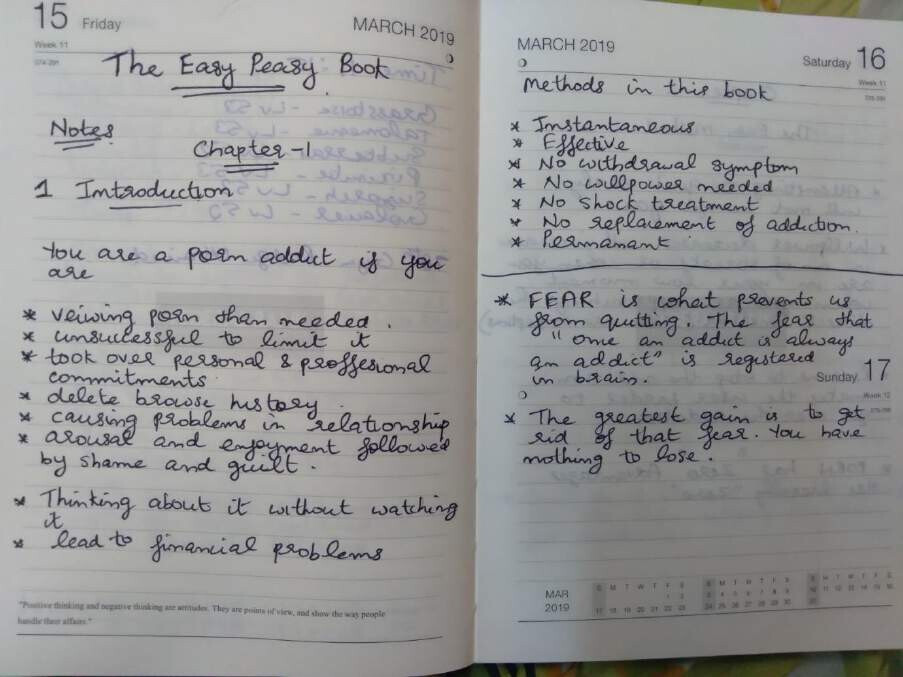 15 Friday
MARCH 2019
Week 11
074-291
The Easy Peasy Book
Notes
Chapter -1
1 Introduction
You are a porn addict if you
are
* veiwing porn than needed.
* unsuccessful to limit it
* took over personal & proffesional
commitments
* delete browse history.
* causing problems in relationship
* arousal and enjoyment followed
by shame and guilt.
* Thinking about it without watching
it
* lead to financial problems
"Positive thinking and negative thinking are attitudes. They are points of view, and show the way people
handle their affairs."
MARCH 2019
Saturday 16
Week 11
075-290
Methods in this book
* Instantaneous
* Effective
* No withdrawal symptom
* No willpower needed
* No shock treatment
* No replacement of addiction.
* Permanant
* FEAR is what prevents us
from quitting. The fear that
"once an addict is always
an addict" is registered
in brain.
Sunday 17
Week 12
* The greatest gain is to get
rid of that fear. You have
nothing to lose.
MAR
2019